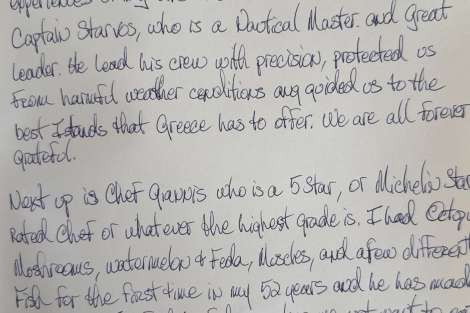 experiences
Captain Starvos, who is a Nautical Master. and Great
leader. He lead his crew with precision, protected us
From harmful weather conditions and guided us to the
best Islands that Greece has to offer. We are all forever
grateful.
Next up is Chef Giannis who is a 5 star, or Michelin Star
Rated Chef or whatever the highest grade is. I had Octop
Moshrooms, watermelon & Feda, Muscles, and a few different
Fish for the first time in my 52 years and he has mad
not want to